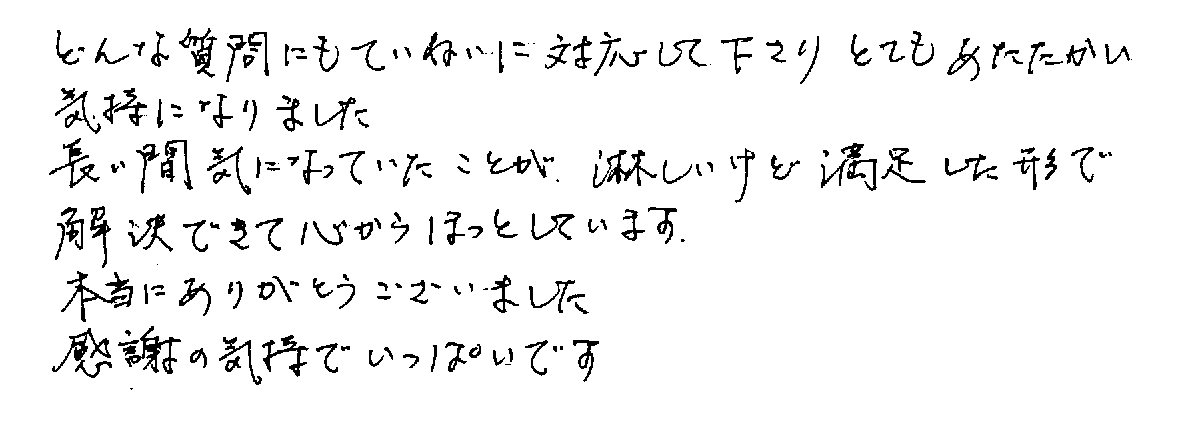 どんな質問にもていねいに対応して下さり とてもあたたかい
気持になりました
長い間気になっていたことが、淋しいけど満足した形で
解決できて心からほっとしています.
本当にありがとうございました
感謝の気持でいっぱいです